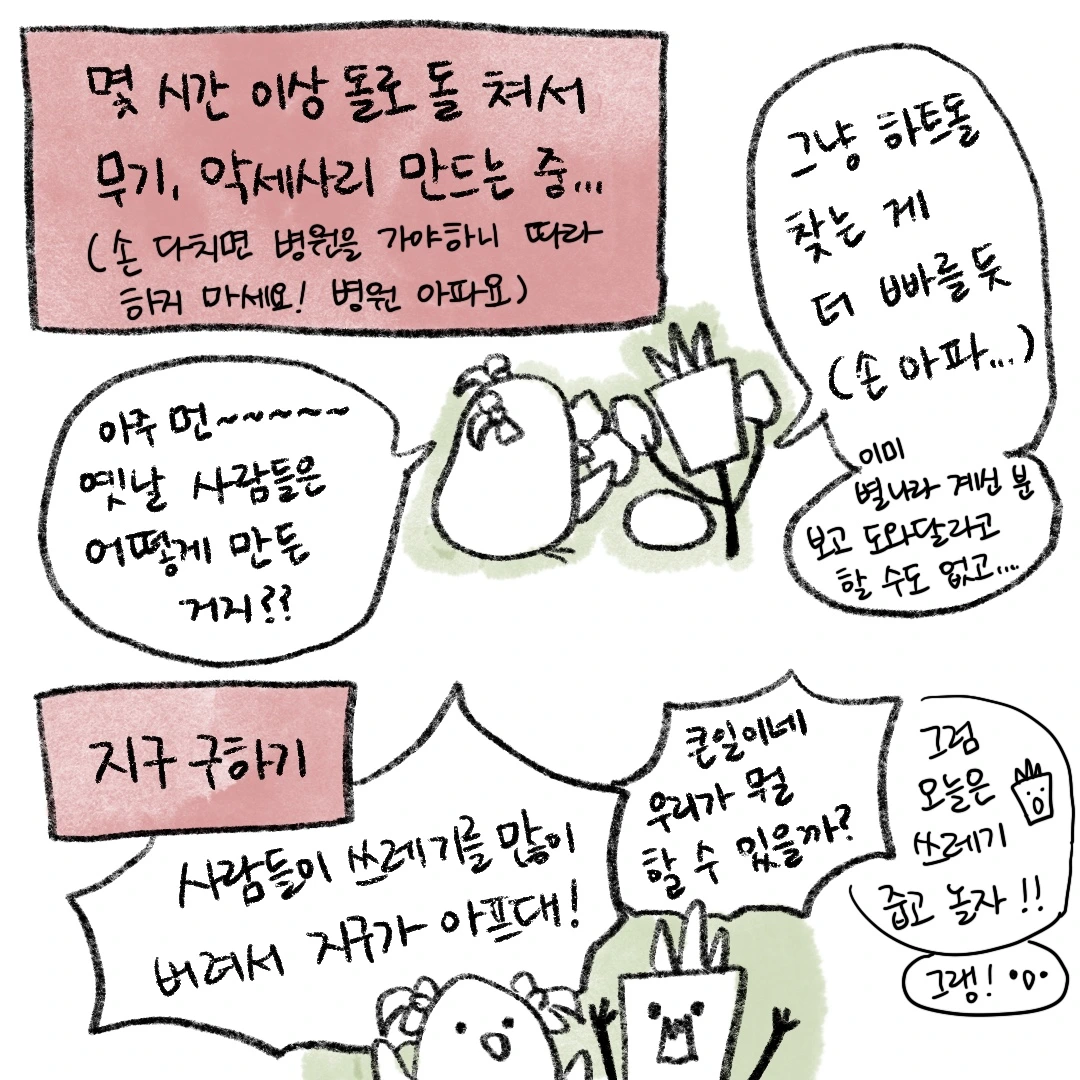 몇 시간 이상 돌로 돌 쳐서
무기, 악세사리 만드는 중...
(손 다치면 병원을 가야하니 따라
하지 마세요! 병원 아파요)
그냥 하트돌
찾는 게
더 빠를듯
(손 아파...)
이미
별나라 계신 분
보고 도와달라고
할 수도 없고...
아주 먼~~~~~~
옛날 사람들은
어떻게 만든
거지??
지구 구하기
사람들이 쓰레기를 많이
버려서 지구가 아프대!
큰일이네
우리가 뭘
할 수 있을까?
그럼
오늘은
쓰레기
줍고 놀자!!
그랭! •o•